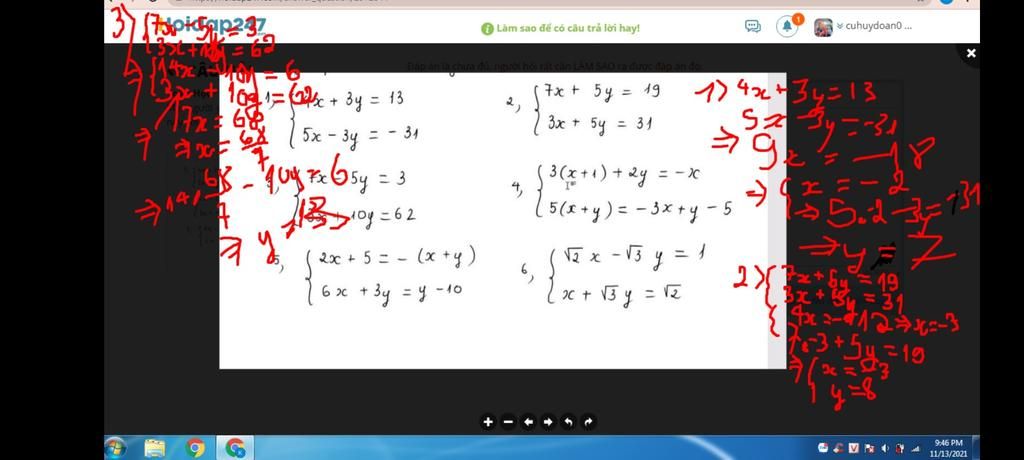 Hoidap247
Làm sao để có câu trả lời hay!
1
cuhuydoan0 ...
Đáp án là chưa đủ, người hỏi rất cần LÀM SAO ra được đáp án đó.
1, { 4x + 3y = 13
5x - 3y = - 31
2, { 7x + 5y = 19
3x + 5y = 31
7x - 5y = 3
10y = 62
4, { 3(x+1) + 2y = -x
5(x+y) = -3x + y - 5
5, { 2x + 5 = - (x + y)
6x + 3y = y - 10
6, { √2 x - √3 y = 1
x + √3 y = √2
3) { 7x - 5y = 3
3x + 10y = 62
14x - 10y = 6
3x + 10y = 62
⇒ 17x = 68
⇒ x = 68
⇒ y
1) 4x + 3y = 13
5x - 3y = -31
⇒ 9x = -18
⇒ x = -2
⇒ 5.-2 - 3y = -31
⇒ y = 7
2) { 7x + 5y = 19
3x + 5y = 31
{ 4x = -12 ⇒ x = -3
7.-3 + 5y = 19
⇒ { x = -3
y = 8
9:46 PM
11/13/2021